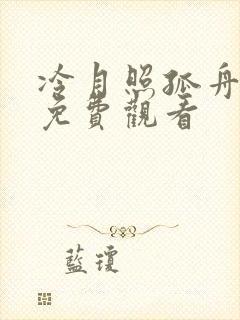 冷月照孤舟
免費觀看
藍瓊